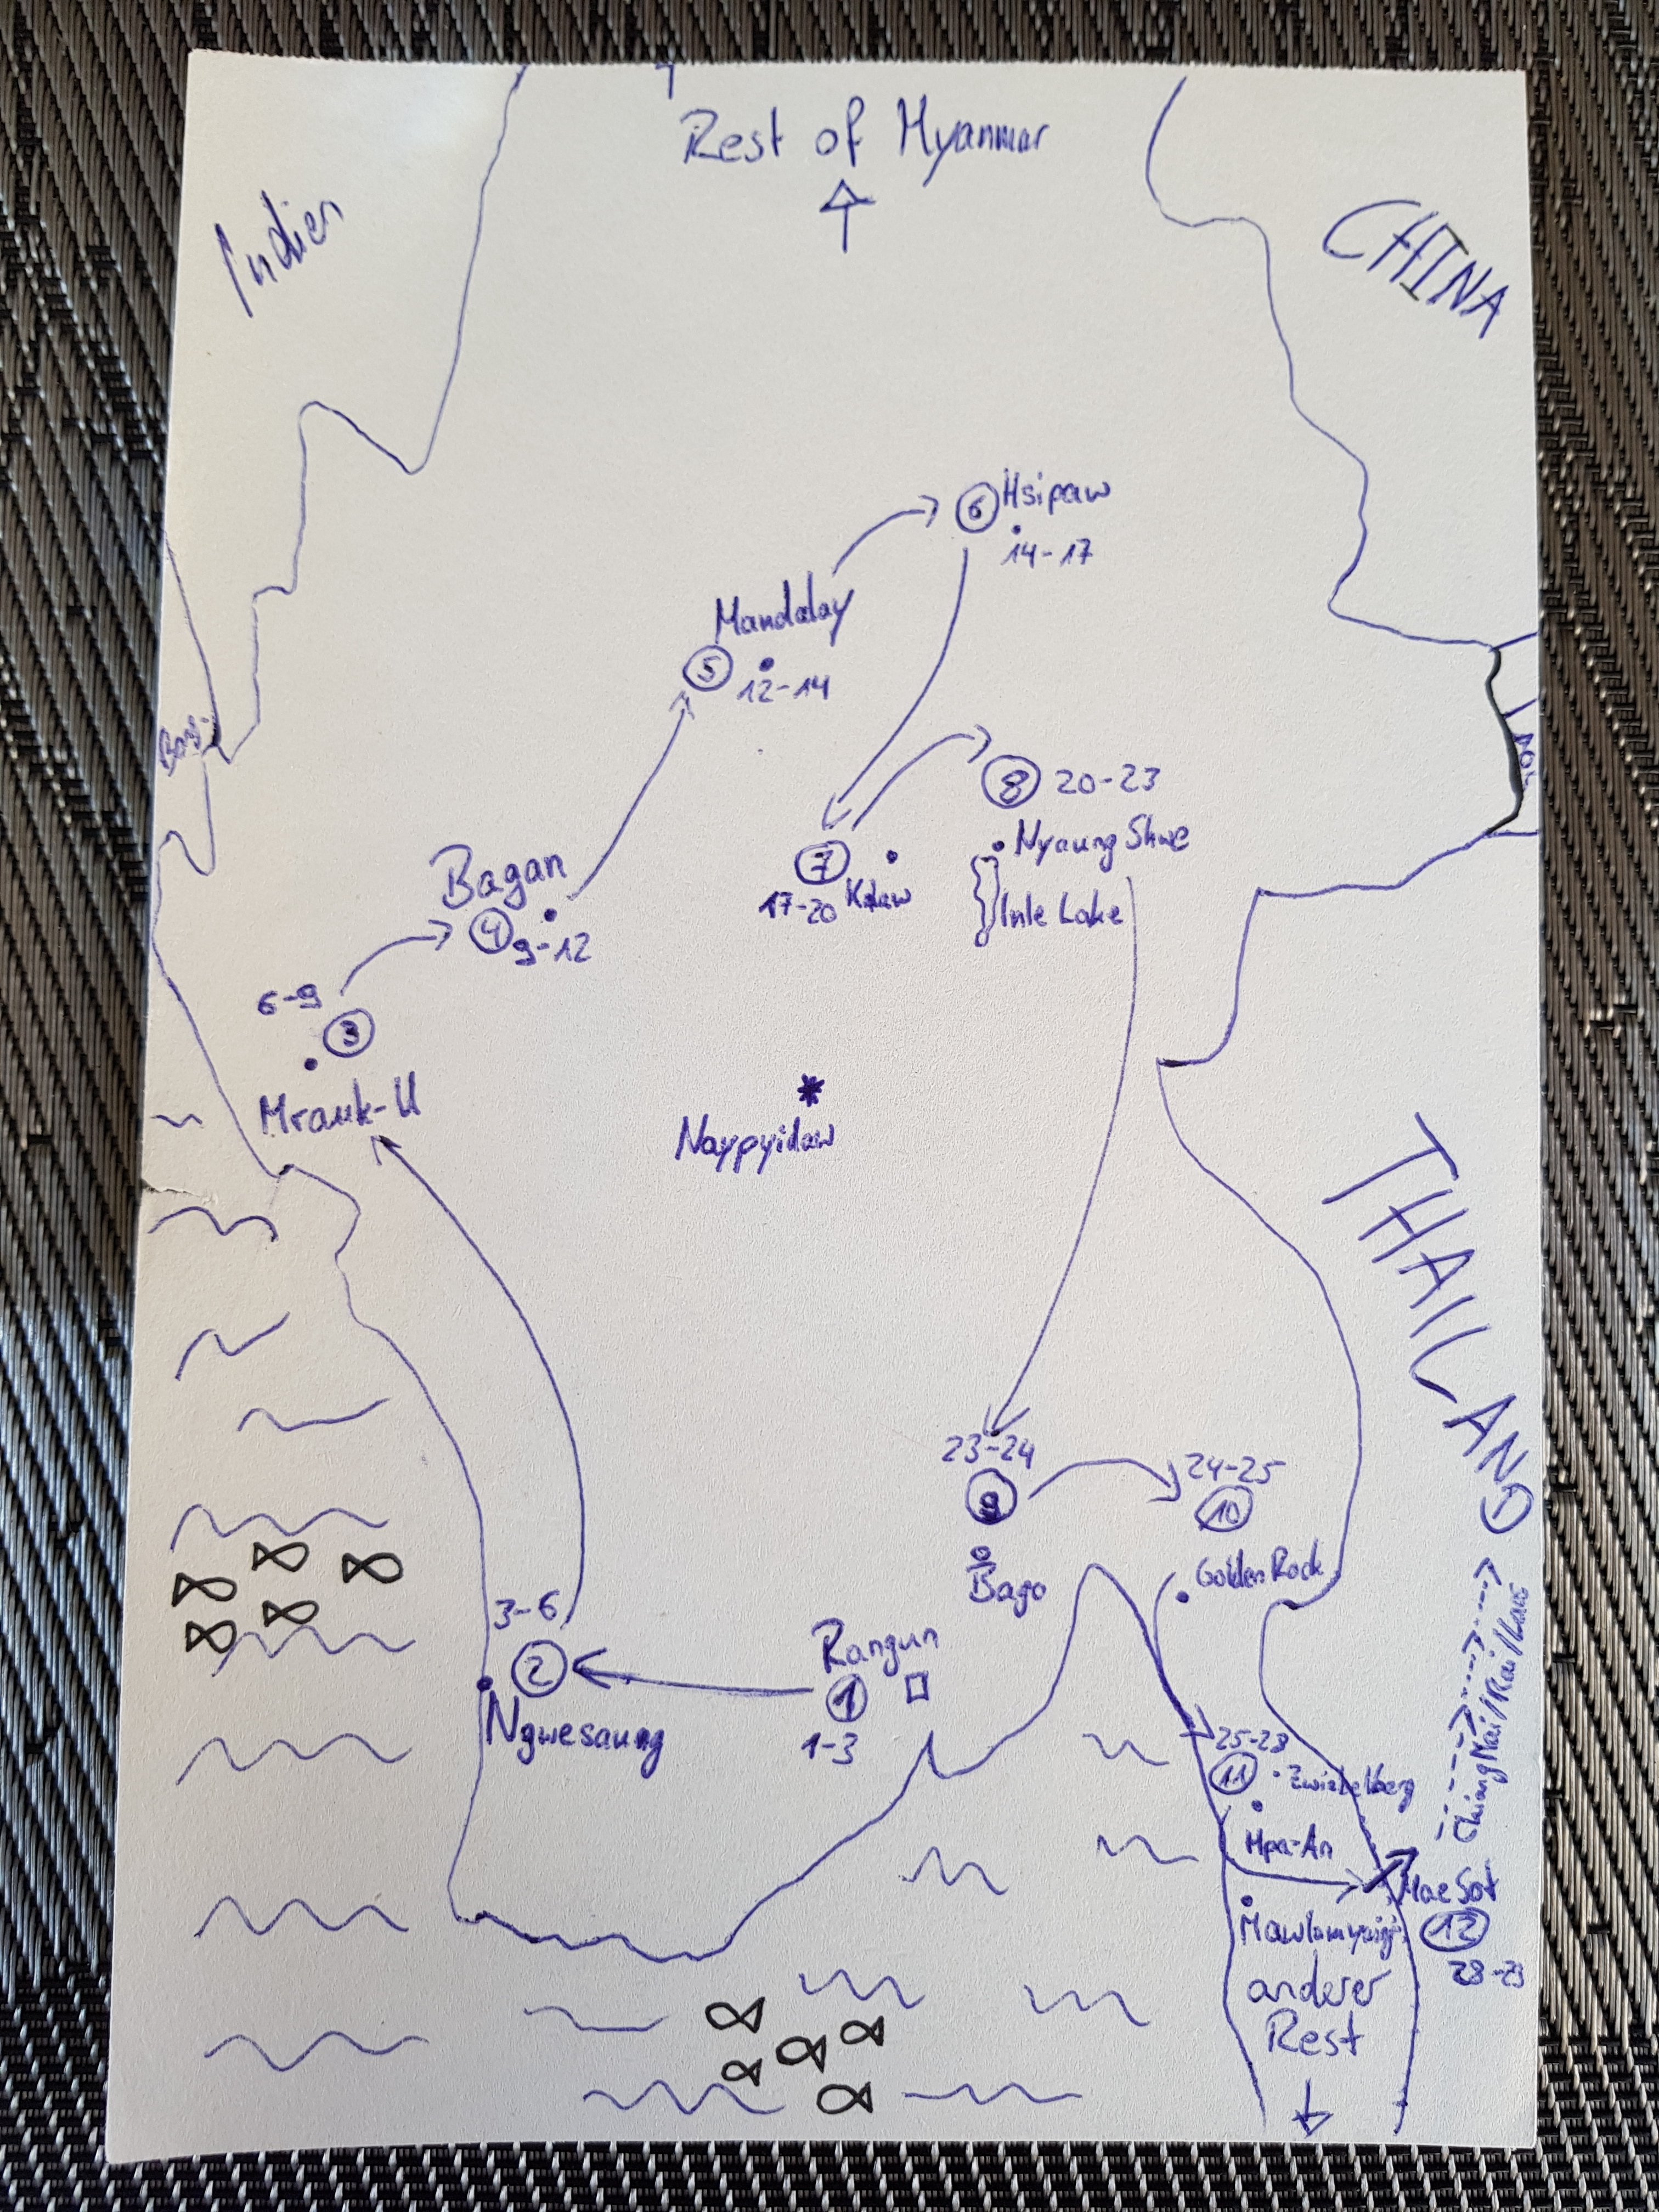 Rest of Myanmar
Indien
CHINA
6 Hsipaw
14-17
Mandalay
5
12-14
8 20-23
Nyaung Shwe
Inle Lake
7
17-20 Kalaw
Bagan
4 9-12
6-9
3
Mrauk-U
Naypyidaw
THAILAND
23-24
9
Bago
24-25
10
Golden Rock
3-6
2
Ngwesaung
Rangun
1
1-3
25-28
11 Zwiebelberg
Hpa-An
Chiang Mai/Rai/Laos
Mae Sot
12
28-29
anderer
Rest